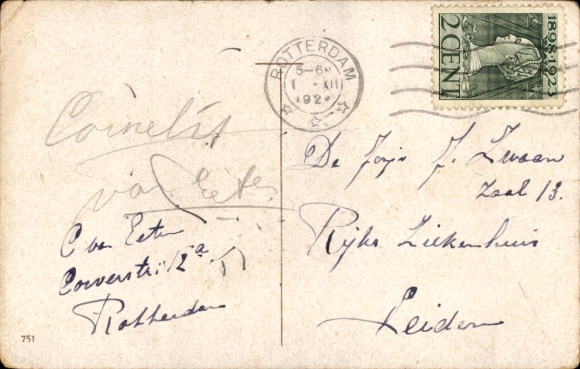 ROTTERDAM
5-6N
1 XII
192
1898-1923
2 CENT
Cornelis
van Eeten
C van Eeten
12a
Rotterdam
De J. Zwaan
Zaal 13.
Rijks Ziekenhuis
Leiden
751